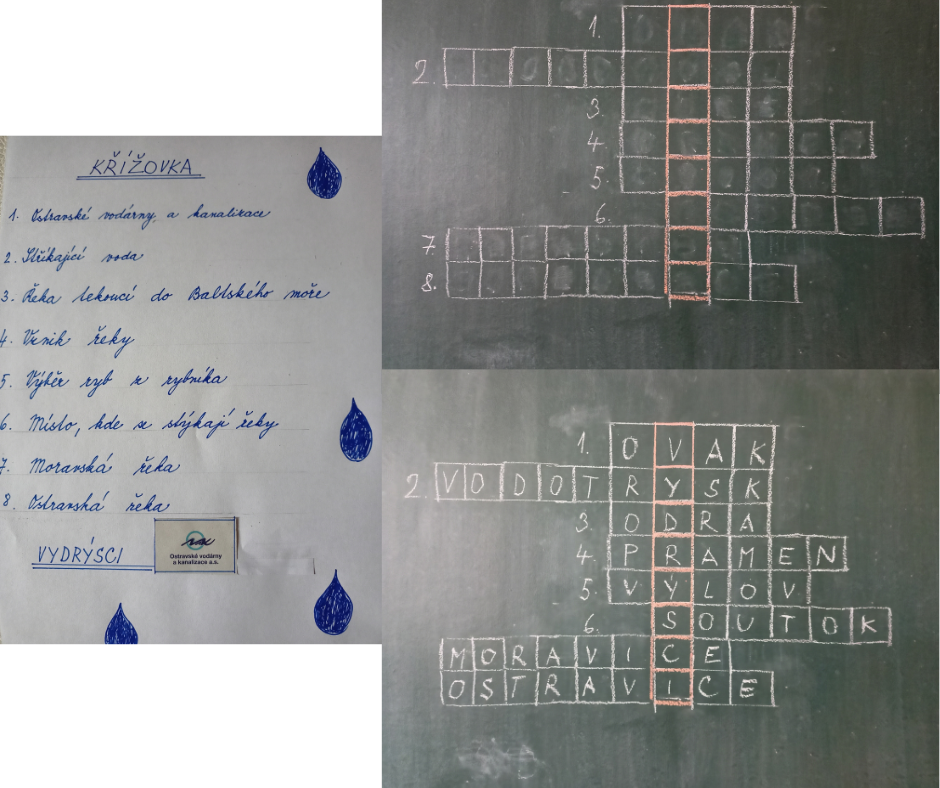 KŘÍŽOVKA
1. Ostravské vodárny a kanalizace
2. Stříkající voda
3. Řeka tekoucí do Baltského moře
4. Vznik řeky
5. Výběr ryb z rybníka
6. Místo, kde se stýkají řeky
7. Moravská řeka
8. Ostravská řeka
VYDRÝSCI
Ostravské vodárny
a kanalizace a.s.
1.
2.
3.
4.
5.
6.
7.
8.
1. OVAK
2. VODOTRYSK
3. ODRA
4. PRAMEN
5. VÝLOV
6. SOUTOK
MORAVICE
OSTRAVICE